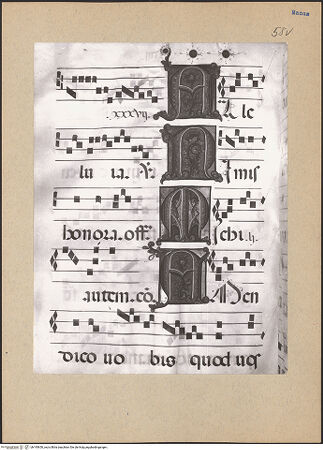 Manus
55v
.xxxvij. A le
lu ia. V. Nimis
honora. off. Michi. h.
autem. co. Amen
dico vo bis quod vos